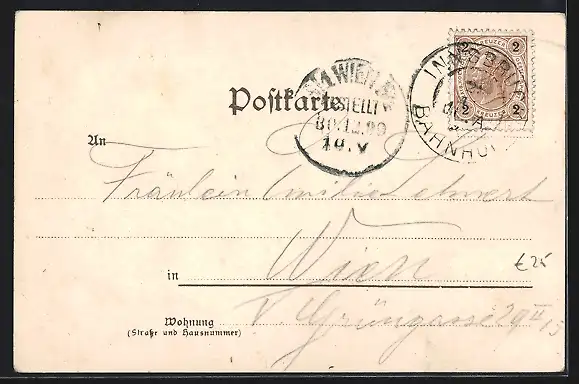 2 KREUZER 2
2 KREUZER 2
INNSBRUCK
BAHNHOF
WIEN
BESTELLT
30.12.99
10.V
Postkarte
An
Fräulein Emilie Lehnert
in Wien
€25
Wohnung
(Straße und Hausnummer)
V Grüngasse 29 II 15